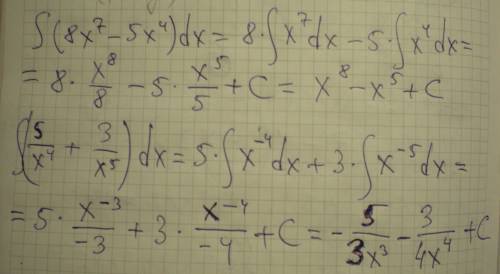 ∫(8x⁷ - 5x⁴)dx = 8·∫x⁷dx - 5·∫x⁴dx =
= 8·x⁸/8 - 5·x⁵/5 + C = x⁸ - x⁵ + C
∫(5/x⁴ + 3/x⁵)dx = 5·∫x⁻⁴dx + 3·∫x⁻⁵dx =
= 5·x⁻³/-3 + 3·x⁻⁴/-4 + C = -5/3x³ - 3/4x⁴ + C